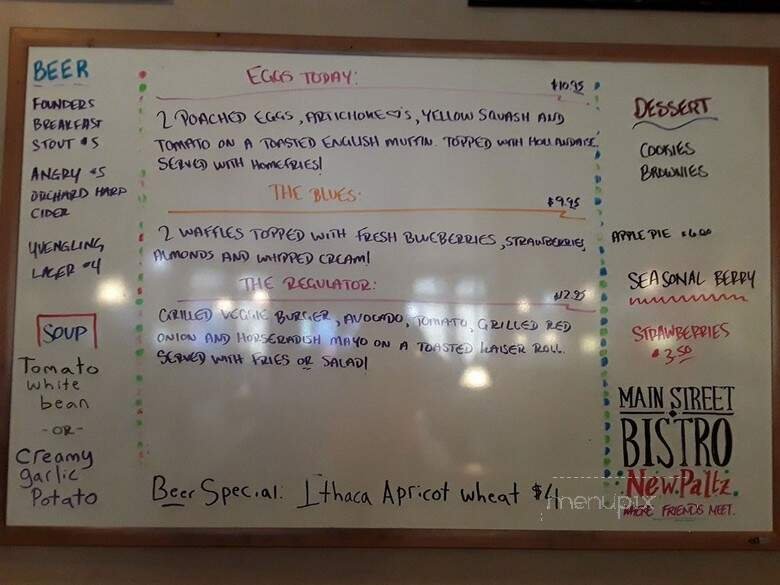 BEER
FOUNDERS
BREAKFAST
STOUT $5
ANGRY $5
ORCHARD HARD
CIDER
YUENGLING
LAGER $4
SOUP
Tomato
white
bean
-OR-
Creamy
garlic
Potato
EGGS TODAY: $10.95
2 POACHED EGGS, ARTICHOKES, YELLOW SQUASH AND
TOMATO ON A TOASTED ENGLISH MUFFIN. TOPPED WITH HOLLANDAISE
SERVED WITH HOMEFRIES!
THE BLUES: $9.95
2 WAFFLES TOPPED WITH FRESH BLUEBERRIES, STRAWBERRIES,
ALMONDS AND WHIPPED CREAM!
THE REGULATOR: $12.95
GRILLED VEGGIE BURGER, AVOCADO, TOMATO, GRILLED RED
ONION AND HORSERADISH MAYO ON A TOASTED KAISER ROLL.
SERVED WITH FRIES OR SALAD!
Beer Special: Ithaca Apricot wheat $4
DESSERT
COOKIES
BROWNIES
APPLE PIE $6.00
SEASONAL BERRY
STRAWBERRIES
$3.50
MAIN STREET
BISTRO
New Paltz.
WHERE FRIENDS MEET.
menupix